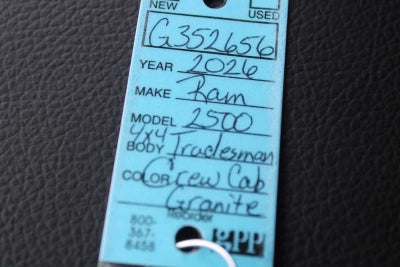 NEW USED
G352656
YEAR 2026
MAKE Ram
MODEL 2500
4x4
BODY Tradesman
COLOR Crew Cab
Granite
800-
367-
8458
Reorder
gpp